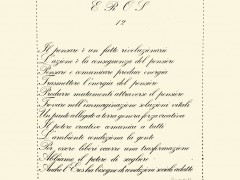 EROS
12
Il pensare è un fatto rivoluzionario
L'azione è la conseguenza del pensiero
Pensare è comunicare produce energia
Trasmettere l'energia del pensiero
Produrre mutamenti attraverso il pensiero
Trovare nell'immaginazione soluzioni vitali
Un punto allegato a terra genera forza creativa
Il potere creativo comunica a tutti
L'ambiente condiziona la gente
Per essere libero occorre una trasformazione
Abbiamo il potere di scegliere
Anche l'Eros ha bisogno di condizioni sociali adatte